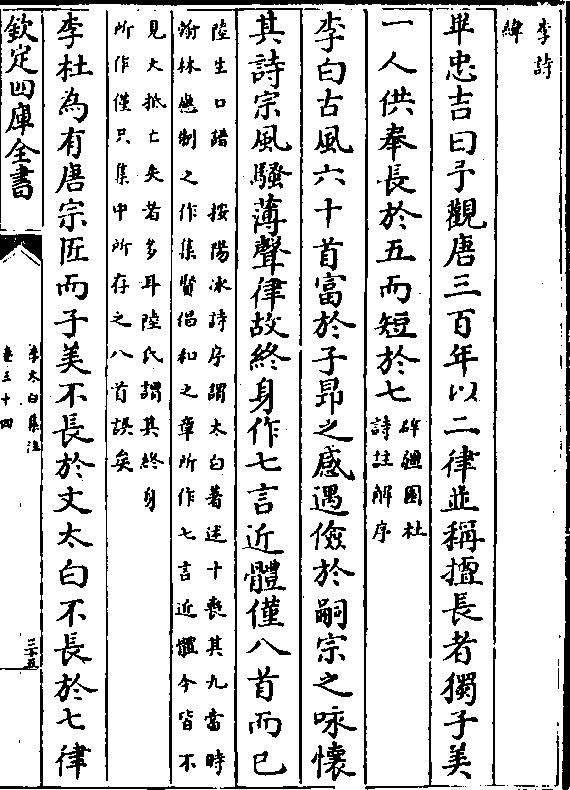 李詩
緯
畢忠吉曰予觀唐三百年以二律並稱擅長者獨子美
一人供奉長於五而短於七
辟疆園杜
詩註解序
李白古風六十首富於子昂之感遇儉於嗣宗之咏懷
其詩宗風騷薄聲律故終身作七言近體僅八首而已
陸生口譜　按陽冰詩序謂太白著述十喪其九當時
翰林應制之作集賢倡和之章所作七言近體今皆不
見大抵亡失者多耳陸氏謂其終身
所作僅只集中所存之八首誤矣
李杜為有唐宗匠而子美不長於文太白不長於七律
欽定四庫全書
李太白集注
卷三十四